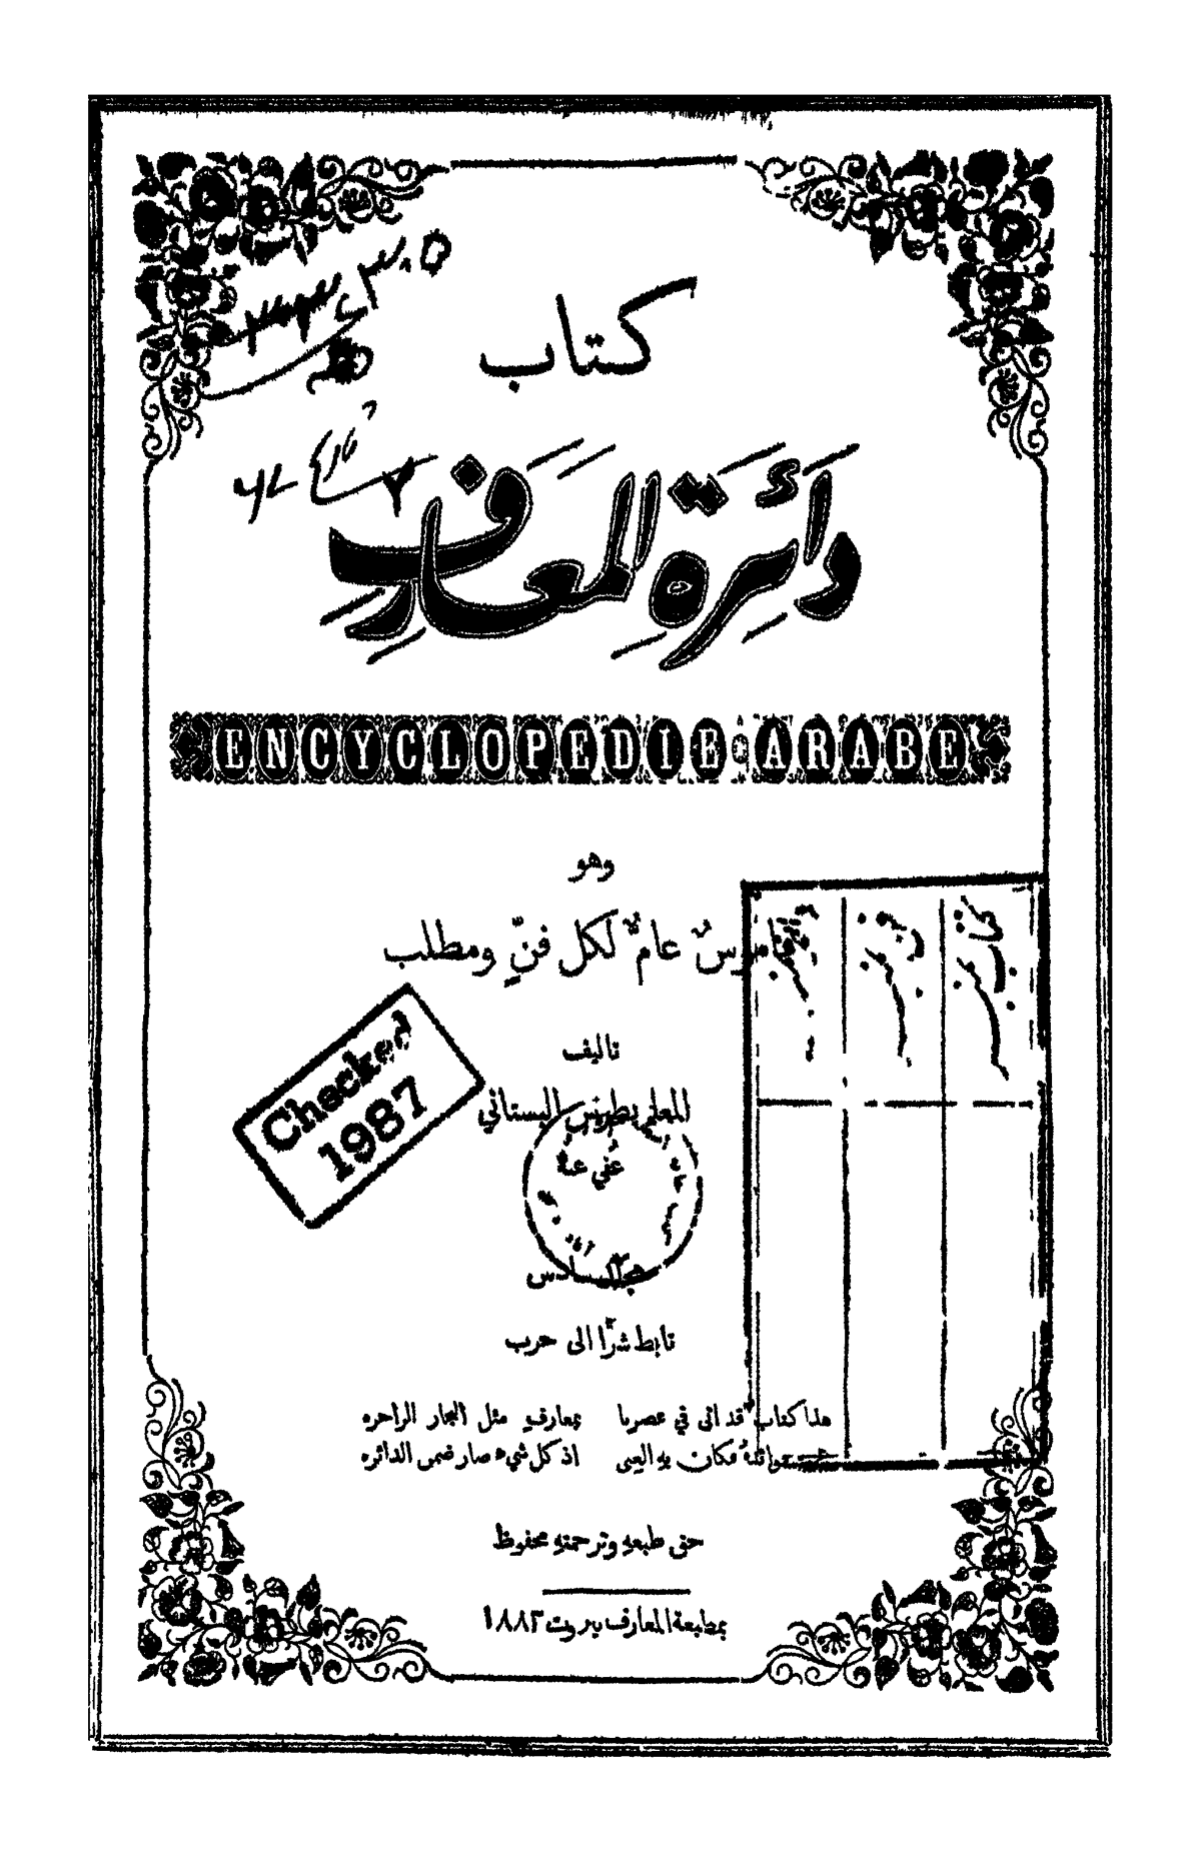 كتاب
دَائِرَةُ المَعَارِفِ
ENCYCLOPEDIE ARABE
وهو
قاموسٌ عامٌّ لكل فنٍّ ومطلب
تاليف
المعلم بطرس البستاني
عُفي عنهُ
المجلد السادس
تابط شرًّا الى حرب
هذا كتاب قد اتى في عصرنا بمعارفٍ مثل البحار الزاخره
فكان به اذ كل شيء صار ضمن الدائره
حق طبعهِ وترجمتهِ محفوظ
بمطبعة المعارف بيروت ١٨٨٢
Checked
1987